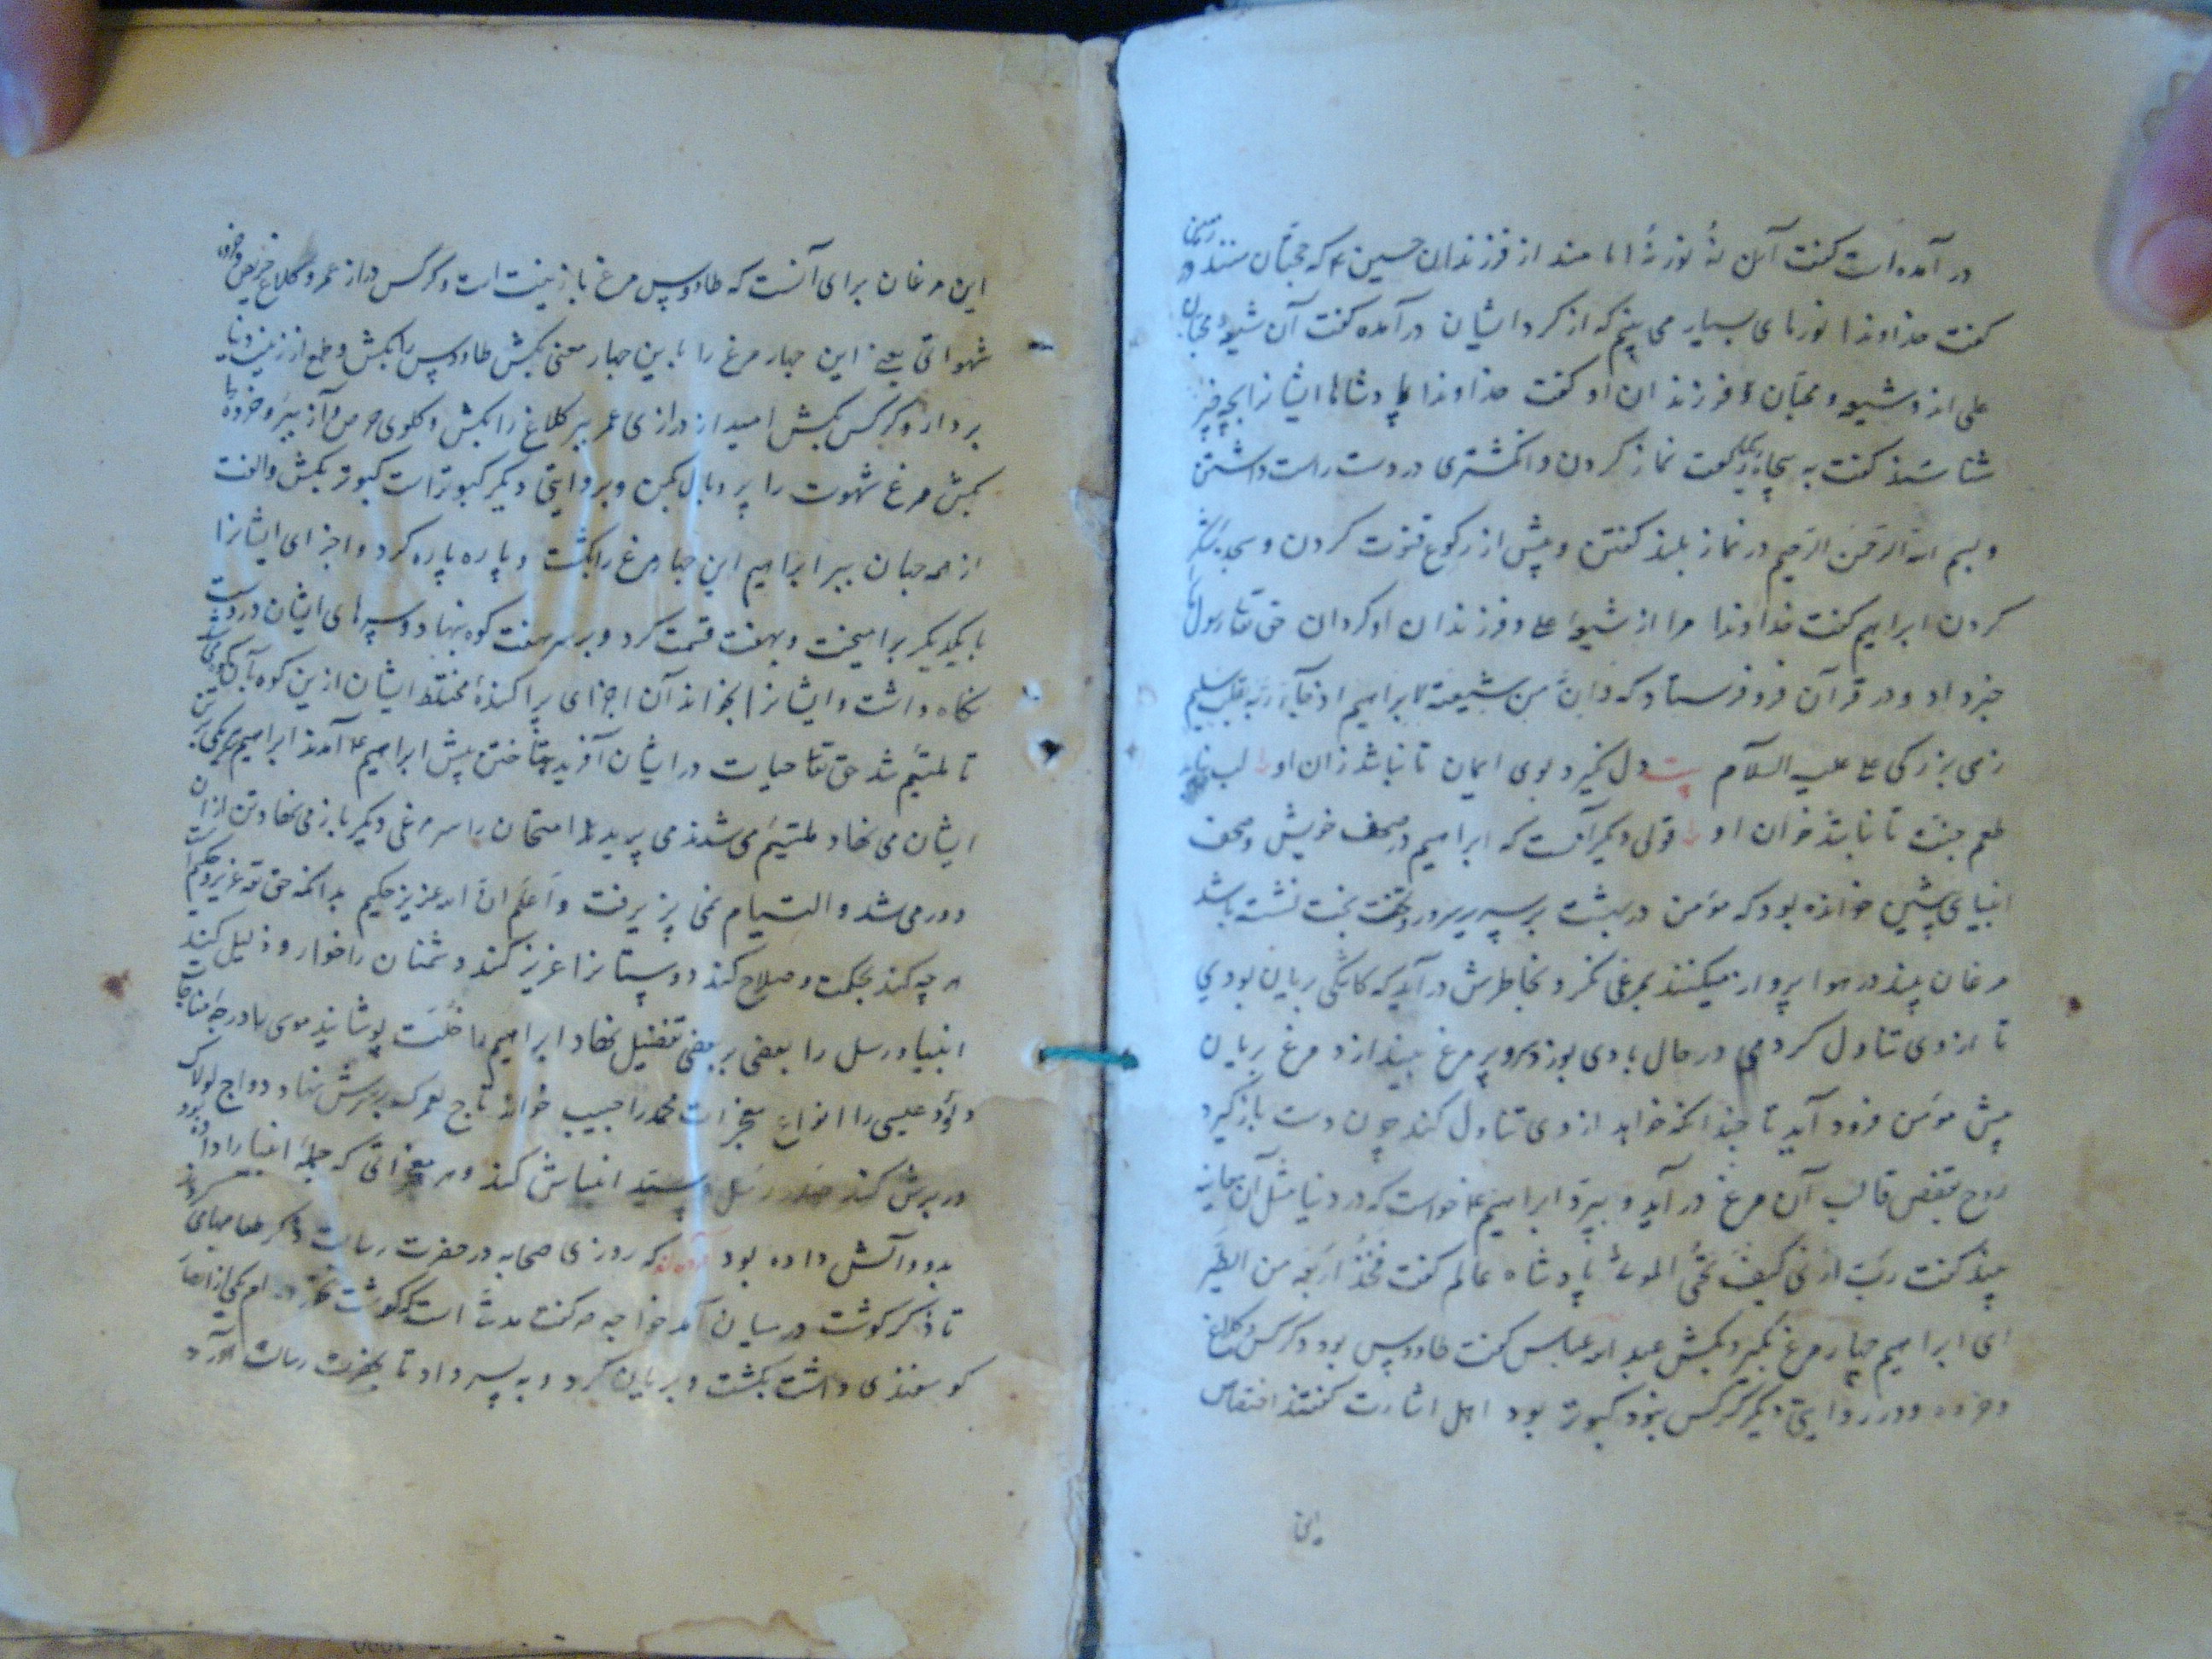 در آمده است گفت آن نه نور نه امامند از فرزندان حسین ع که حجتان منند در زمین
گفت خداوندا نورهای بسیار می بینم که از گرد ایشان درآمده گفت آن شیعه و محبان
علی اند و شیعه و محبان و فرزندان او گفت خداوندا پادشاها ایشانرا بچه چیز
شناسند گفت به پنجاه و یک رکعت نماز کردن و انگشتری در دست راست داشتن
و بسم الله الرحمن الرحیم در نماز بلند گفتن و پیش از رکوع قنوت کردن و سجده شکر
کردن ابراهیم گفت خداوندا مرا از شیعه علی و فرزندان او گردان حق تعا رسول را
خبر داد و در قرآن فرو فرستاد که و ان من شیعته لابراهیم اذ جاء ربه بقلب سلیم
زهی بزرگی علی علیه السلام بیت دل نگیرد بوی ایمان تا نباشد زان او لب نیابد
طعم جنت تا نباشد خوان او قولی دیگر آنست که ابراهیم در صحف خویش و صحف
انبیای پیشین خوانده بود که مؤمن در بهشت بر سریر سرور و تخت بخت نشسته باشد
مرغان بیند در هوا پرواز میکنند بمرغی نگرد بخاطرش درآید که کاشکی بریان بودی
تا ازوی تناول کردمی در حال بادی بوزد و پر مرغ بیندازد مرغ بریان
پیش مؤمن فرود آید تا چندانکه خواهد ازوی تناول کند چون دست بازگیرد
روح بقفص قالب آن مرغ درآید و بپرد ابراهیم ع خواست که در دنیا مثل آن معاینه
بیند گفت رب ارنی کیف تحیی الموتی پادشاه عالم گفت فخذ اربعة من الطیر
ای ابراهیم چهار مرغ بگیر و بکش عبد الله عباس گفت طاووس بود و کرکس و کلاغ
و خروه و در روایتی دیگر کرکس نبود کبوتر بود اهل اشارت گفتند اختصاص
این
این مرغان برای آنست که طاووس مرغ بازینت است و کرکس دراز عمر و کلاغ حریص و خروه
شهوانی یعنی این چهار مرغ را باین چهار معنی بکش طاووس را بکش و طمع از زینت دنیا
بردار و کرکس بکش امید از درازی عمر ببر کلاغ را بکش و گلوی حرص و آز ببر و خروه را
بکش مرغ شهوت را پر و بال بکن و بروایتی دیگر کبوتر است کبوتر بکش و الفت
از همه جهان ببر ابراهیم این چهار مرغ را بکشت و پاره پاره کرد و اجزای ایشانرا
با یکدیگر برآمیخت و بهفت قسمت کرد و بر سر هفت کوه بنهاد و سرهای ایشان در دست
نگاه داشت و ایشانرا بخواند آن اجزای پراکنده مختلط ایشان ازین کوه بآن کوه می شد
تا ملتئم شد حق تعا حیات در ایشان آفرید بتاختن پیش ابراهیم ع آمدند ابراهیم سر یکی بر تن
ایشان می نهاد ملتئم می شدند می پرید امتحان را سر مرغی دیگر باز می نهاد تن ازان
دور می شد و التیام نمی پزیرفت و اعلم ان الله عزیز حکیم بدانکه حق تعه عزیز و حکیم است
هر چه کند بحکمت و صلاح کند دوستانرا عزیز کند و دشمنان را خوار و ذلیل کند
انبیا و رسل را بعضی بر بعضی تفضیل نهاد ابراهیم را خلت پوشانید موسی را درجه مناجات
داود و عیسی را انواع معجزات محمد را حبیب خواند تاج لعمرک بر سرش نهاد و دواج لولاک
در برش کند صدر رسل و سید انبیاش کند و هر معجزاتی که جمله انبیا را داده بود
بدو و آلش داده بود آورده اند که روزی صحابه در حضرت رسالت ذکر طعامهای میکردند
تا ذکر گوشت در میان آمد خواجه ص گفت مدتی است که گوشت نخورده ام یکی از انصار
گوسفندی داشت بکشت و بریان کرد و به پسر داد تا بحضرت رسالت آورد